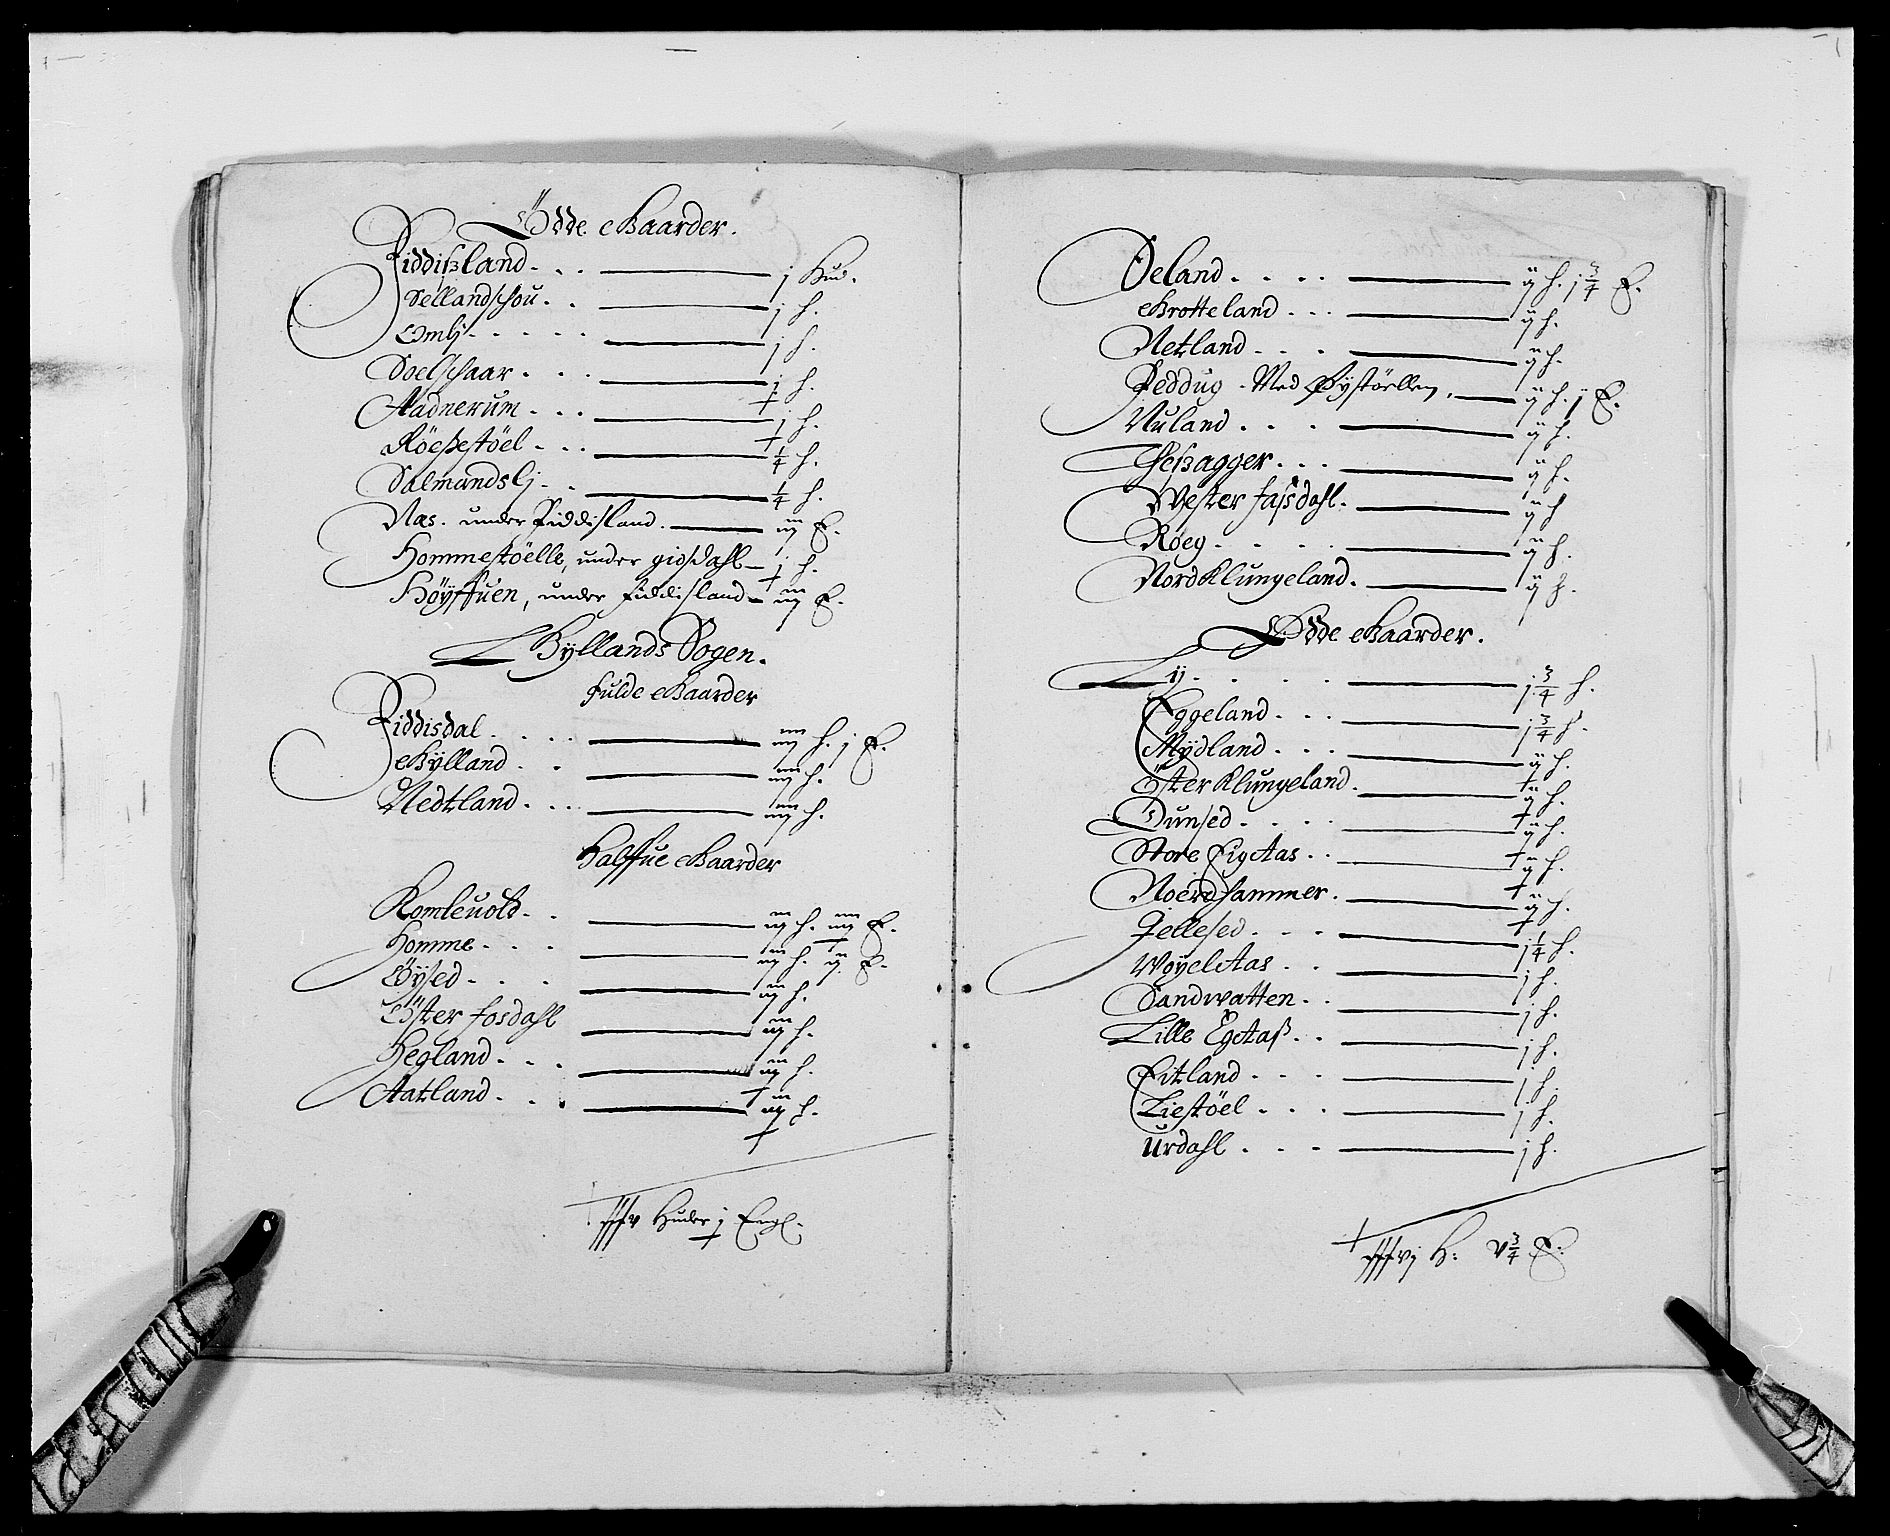 Ödde Gaarder.
Fiddißland. . . j Hud.
Sellandschou. . . j h.
Omlj. . . . . j h.
Soelschaar . . . j h.
Aadnerum . . . j h.
Röeßestöel . . . ¼ h.
Salmandslj . . ¼ h.
Næs. under Fiddisland. iij E.
Hommestöelle, under giosdahl j h.
Höyffuen, under Fiddisland iij E.
Gyllands Sogen.
fulde Gaarder
Fiddisdal . . . . iiij h. j E.
Gylland . . iiij h.
Nedtland . . . iiij h.
Halffue Gaarder
Romleuold . . iij h. iiij E.
Homme . . . iij h. ij E.
Öysed . . . . iij h.
Öster fosdahl iij h.
Hegland . . . iij h.
Aatland . . . iij h.
Huder j Engl.
Oeland . . . . ij h. j ¾ E.
Grotteland . . . ij h.
Netland . . . ij h.
Peddug. Med Øystöellen, ij h. j E.
Nuland . . . ij h.
Heßagger . . . ij h.
Wester fassdahl. ij h
Röeg . . . . ij h.
Nord Klungeland. ij h.
Ödde Gaarder.
Lij . . . . j ¾ h.
Eggeland . . . j ¾ h.
Mydland . . . ij h.
Öster Klungeland. ij h.
Dunsed . . . . ij h.
Store EigAas . . ij h.
Noerdhammer. ij h.
Jellesed . . . j ¼ h.
WoyelAas . . j h.
Sandwatten . . j h.
Lille EgAaß . . j h.
Eitland . . . j h.
Liestöel . . . j h.
Urdahl . . . j h.
H: v ¾ E: